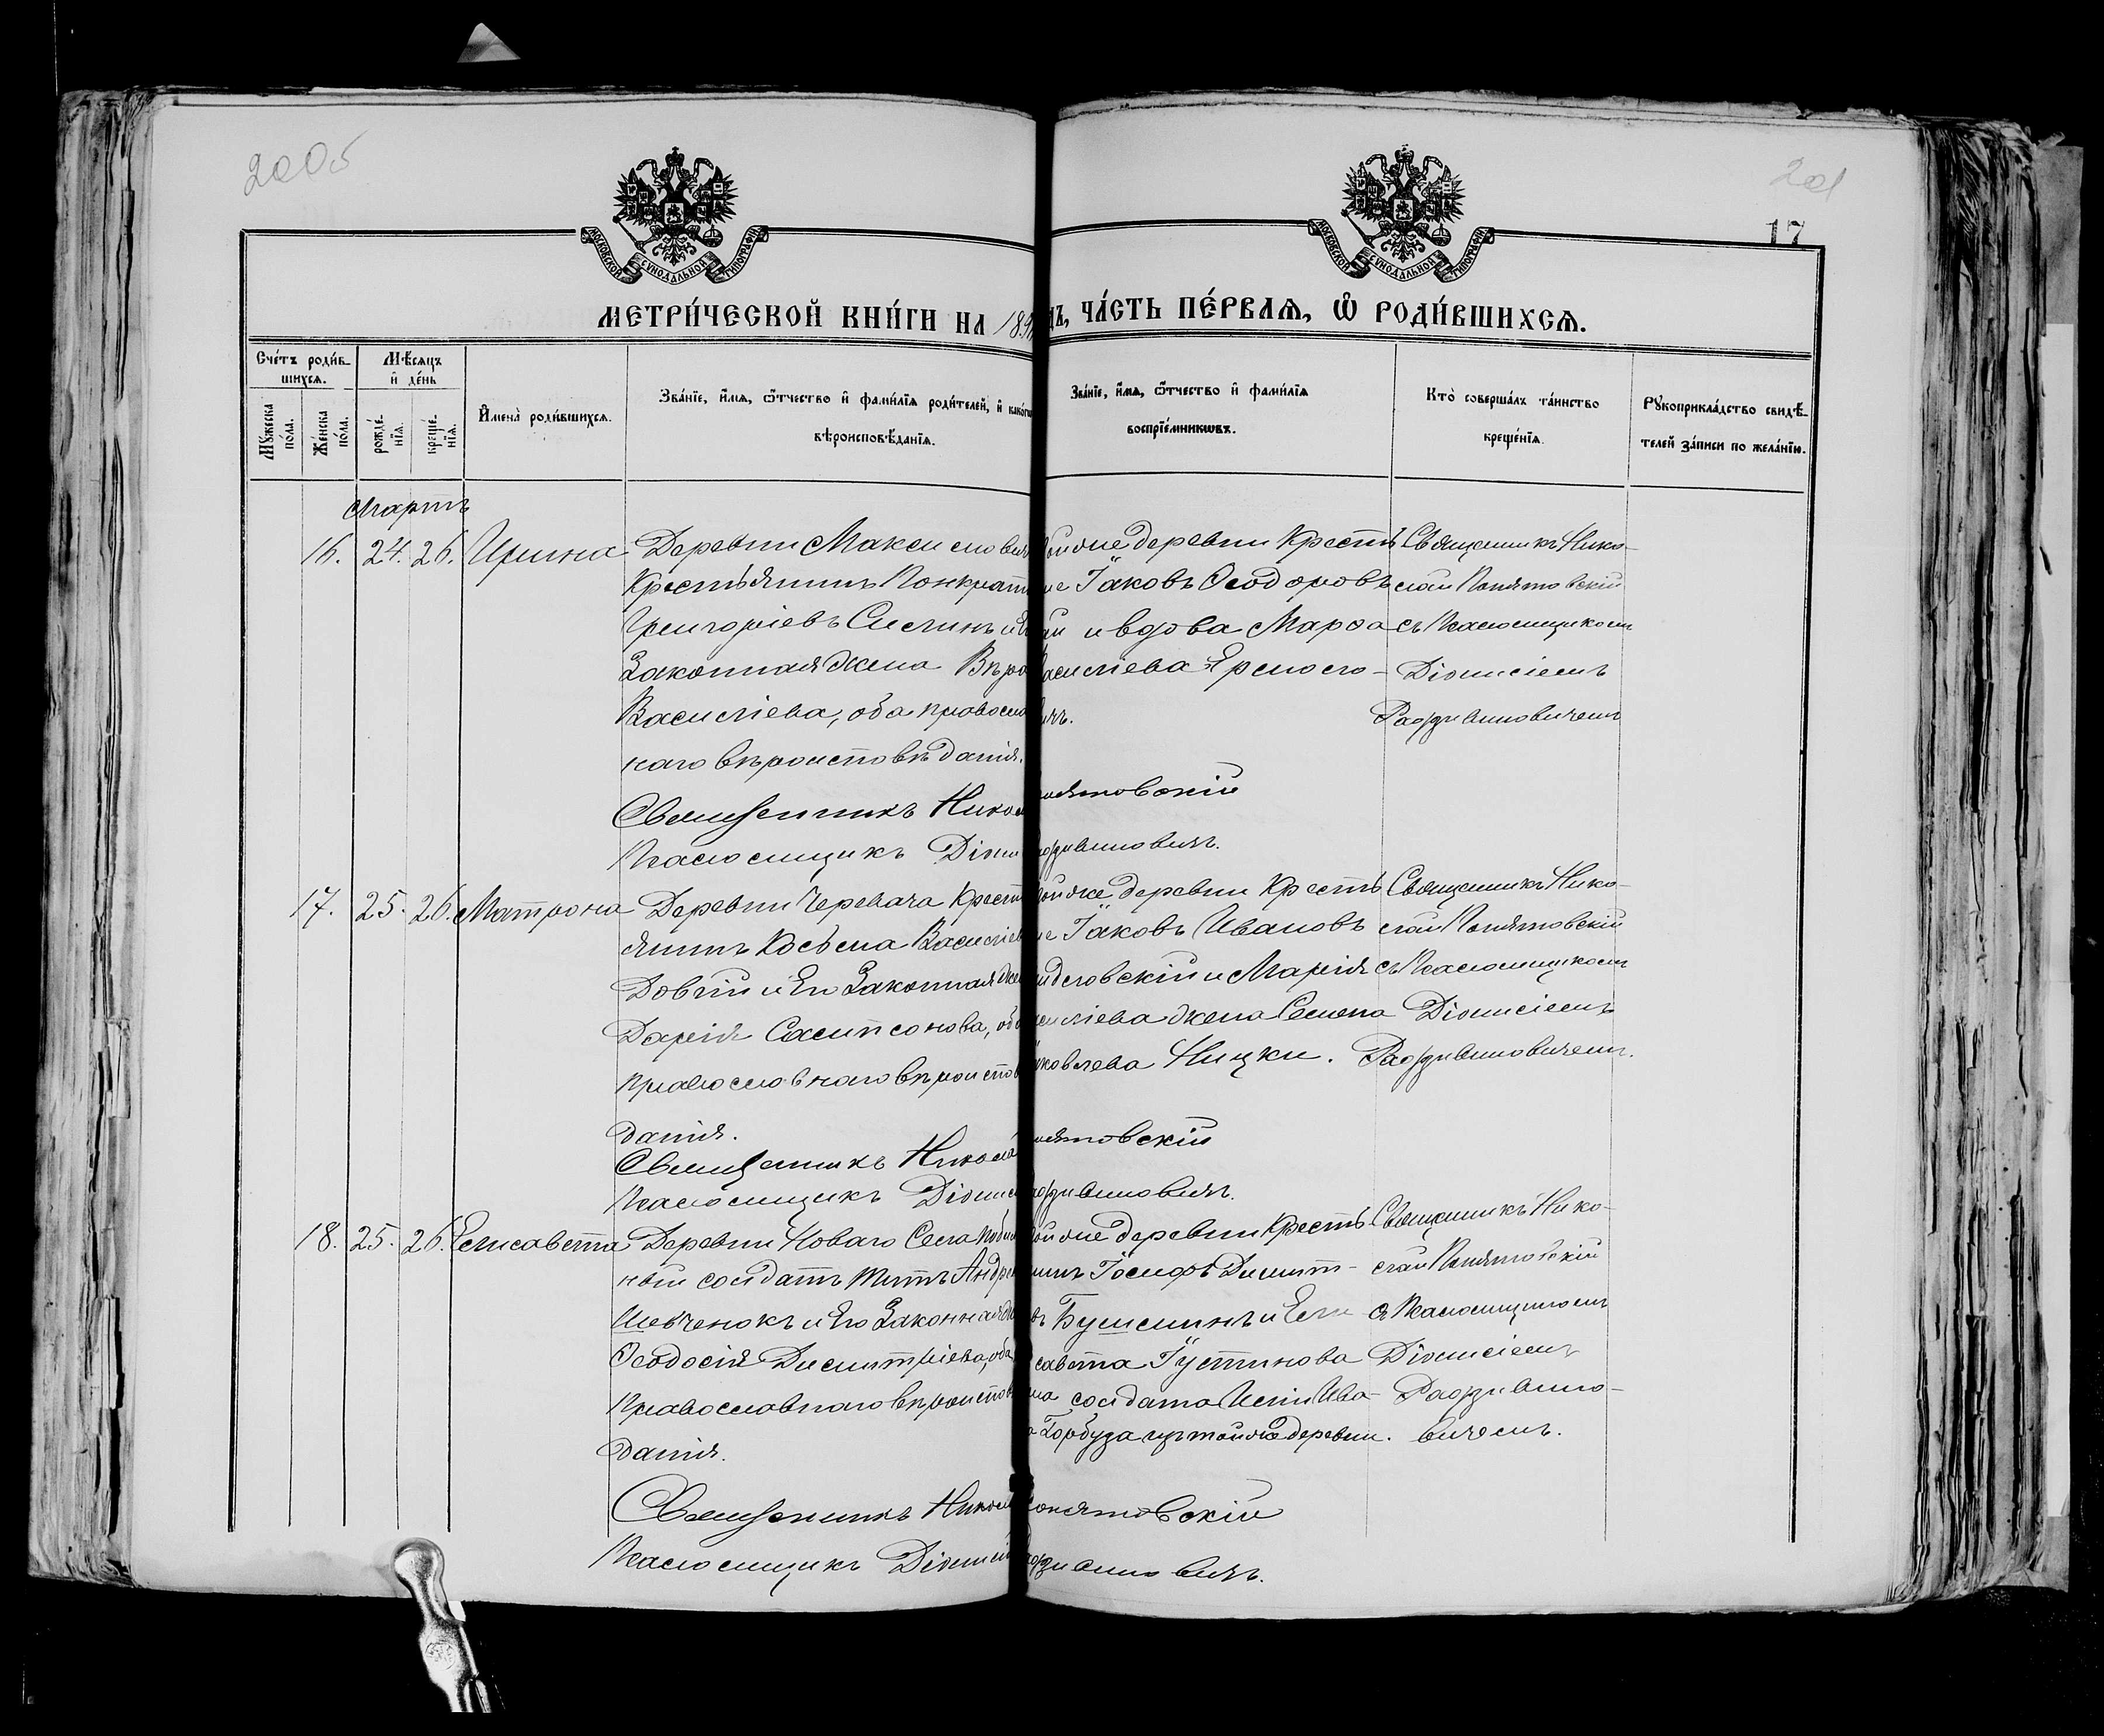 200об
201
17
МОСКОВСКОЙ СѴНОДАЛЬНОЙ ТИПОГРАФІИ
МОСКОВСКОЙ СѴНОДАЛЬНОЙ ТИПОГРАФІИ
МЕТРИ́ЧЕСКОЙ КНИ́ГИ НА 189
ДЪ, ЧА́СТЬ ПЕ́РВАѦ, Ѿ РОДИ́ВШИХСѦ.
Сче́тъ роди́в-
шихсѧ.
Мꙋжеска
по́ла.
Же́нска
по́ла.
Мѣ́сяцъ
и҆ де́нь
рожде́-
нїѧ.
креще́-
нїѧ.
И҆мена̀ роди́вшихсѧ.
Зва́нїе, и҆́мѧ, ѻ҆́тчество и҆ фами́лїѧ роди́телей, и҆ како́гѡ
вѣроисповѣ́данїѧ.
Зва́нїе, и҆́мѧ, ѻ҆́тчество и҆ фами́лїѧ
воспрїе́мникѡвъ.
Кто̀ соверша́лъ та́инство
креще́нїѧ.
Рꙋкоприкла́дство свидѣ́-
телей за́писи по жела́нїю.
Мартъ
16. 24. 26. Ирина
Деревни Максимович
Крестьянинъ Понкрат
Григоріевъ Силинъ и Е
Законная жена Вѣра
Василіева, оба православ
наго вѣроисповѣданія.
Священникъ Никол
Псаломщикъ Діони
ой же деревни Кресть
не Іаковъ Ѳеодоровъ
и вдова Марѳа
асиліева Ярмоло-
ичъ.
онятовскій
Раздяловичъ.
Священникъ Нико-
лай Понятовскій
съ Псаломщикомъ
Діонисіемъ
17. 25. 26. Матрона
Деревни Черевача Крест
янинъ Косьма Василіев
Довгій и Его Законная же
Дарія Сампсонова, оба
православнаго вѣроисповѣ
данія.
Священникъ Никола
Псаломщикъ Діонис
ой же деревни Кресть
не Іаковъ Ивановъ
и Марія
асиліева жена Семена
Яковлева Ницки.
онятовскій
Священникъ Нико-
лай Понятовскій
съ Псаломщикомъ
Діонисіемъ
18. 25. 26. Елисавета
Деревни Новаго Села
ный солдатъ Титъ Андре
Шевченокъ и Его Законная же
Ѳеодосія Димитріева, оба
Православнаго вѣроисповѣ
данія.
Священникъ Никол
Псаломщикъ Діонисій
ой же деревни Кресть
нинъ Іосифъ Димит-
въ Бушминъ и Ели
савета Іустинова
на солдата Ива-
а Горбуза изъ той же деревни.
онятовскій
Священникъ Нико-
лай Понятовскій
съ Псаломщикомъ
Діонисіемъ
вичемъ.